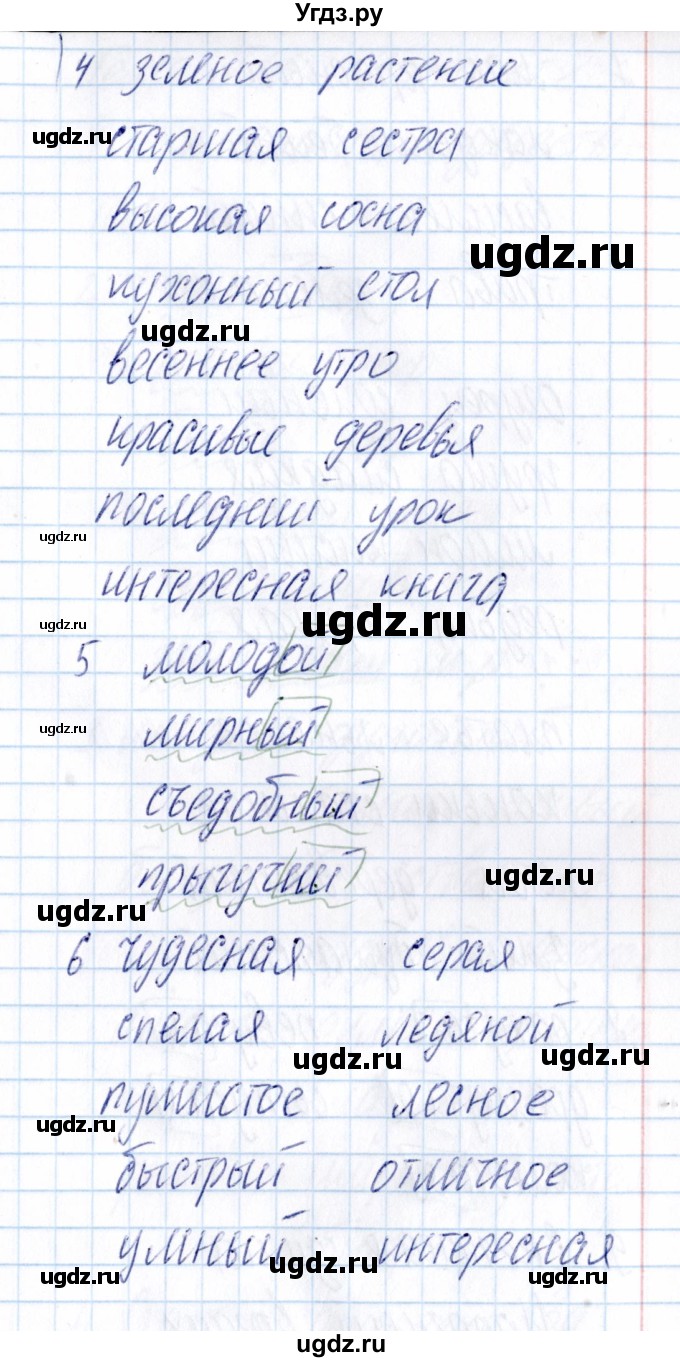 Угдз.ру
4 зеленое растение
ugdz.ru
старшая сестра
высокая сосна
ugdz.ru
кухонный стол
ugdz.ru
весеннее утро
красивые деревья
последний урок
ugdz.ru
интересная книга
ugdz.ru
ugdz.ru
5 молодой
ugdz.ru
мирный
съедобный
прыгучий
ugdz.ru
ugdz.ru
6 чудесная серая
спелая ледяной
ugdz.ru
ugdz.ru
пушистое лесное
ugdz.ru
быстрый отличное
умный интересная
ugdz.ru
ugdz.ru
ugdz.ru
ugdz.ru